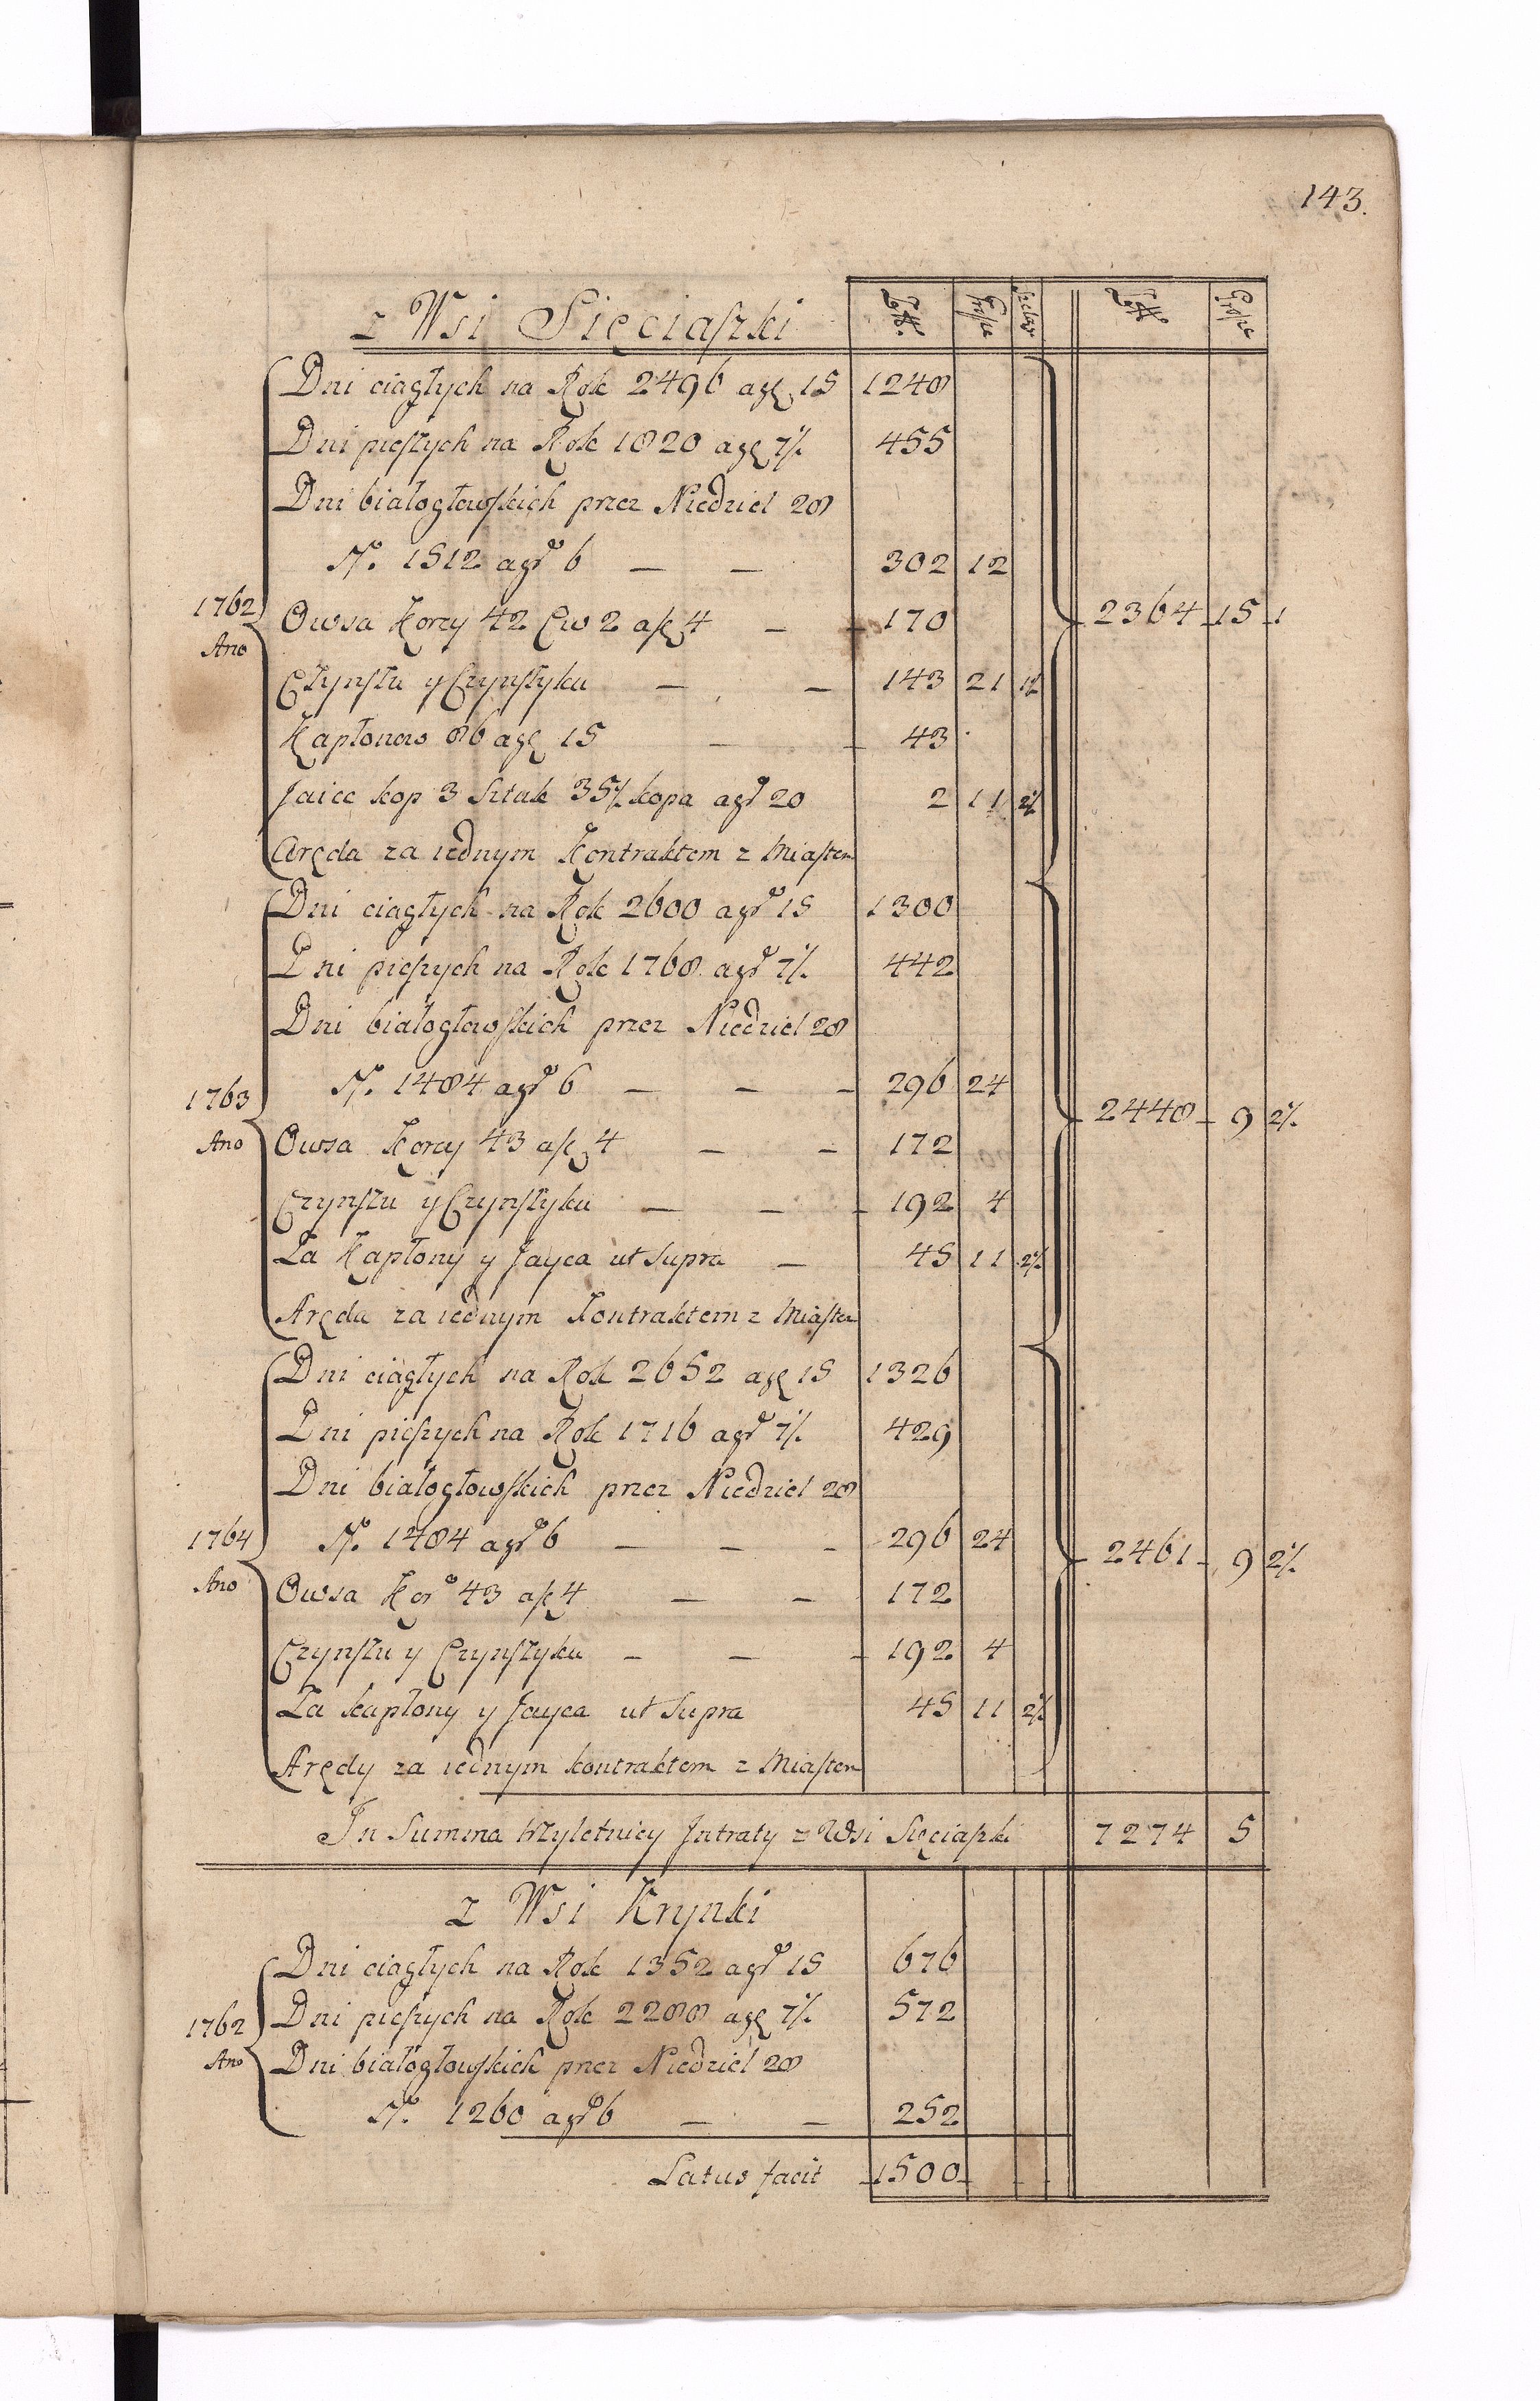 143.
z Wsi Sięciaszki Zł. Grosze Szeląg Zł. Grosze
Dni ciągłych na Rok 2496 agr 15 1248
Dni pieszych na Rok 1820 agr 7½ 455
Dni białogłowskich przez Niedziel 28
No. 1512 agro 6 — — 302 12
1762 Owsa Korcy 42 Ćw 2 afl 4 — 170 2364 15 1
Ano
Czynszu y Czynszyku — — 143 21 1½
Kapłonow 86 agr 15 — 43
Jaiec kop 3 Sztuk 35½ kopa agro 20 2 11 2½
Aręda za iednym Kontraktem z Miastem
Dni ciągłych na Rok 2600 agro 15 1300
Dni pieszych na Rok 1768 agro 7½ 442
Dni białogłowskich przez Niedziel 28
1763 No. 1484 agro 6 — — — 296 24
2448 9 2½
Ano Owsa Korcy 43 afl 4 — — 172
Czynszu y Czynszyku — — — 192 4
Za Kapłony y Jayca ut Supra — 45 11 2½
Aręda za iednym Kontraktem z Miastem
Dni ciągłych na Rok 2652 agr 15 1326
Dni pieszych na Rok 1716 agro 7½ 429
Dni białogłowskich przez Niedziel 28
1764 No. 1484 agro 6 — — — 296 24 2461 9 2½
Ano Owsa Koro 43 afl 4 — — 172
Czynszu y Czynszyku — — — 192 4
Za kapłony y Jayca ut Supra 45 11 2½
Arędy za iednym kontraktem z Miastem
In Summa trzyletnicy Intraty z Wsi Sięciaszki 7274 5
z Wsi Krynki
Dni ciągłych na Rok 1352 agro 15 676
1762 Dni pieszych na Rok 2288 agr 7½ 572
Ano Dni białogłowskich przez Niedziel 28
No. 1260 agro 6 — — 252
Latus facit 1500